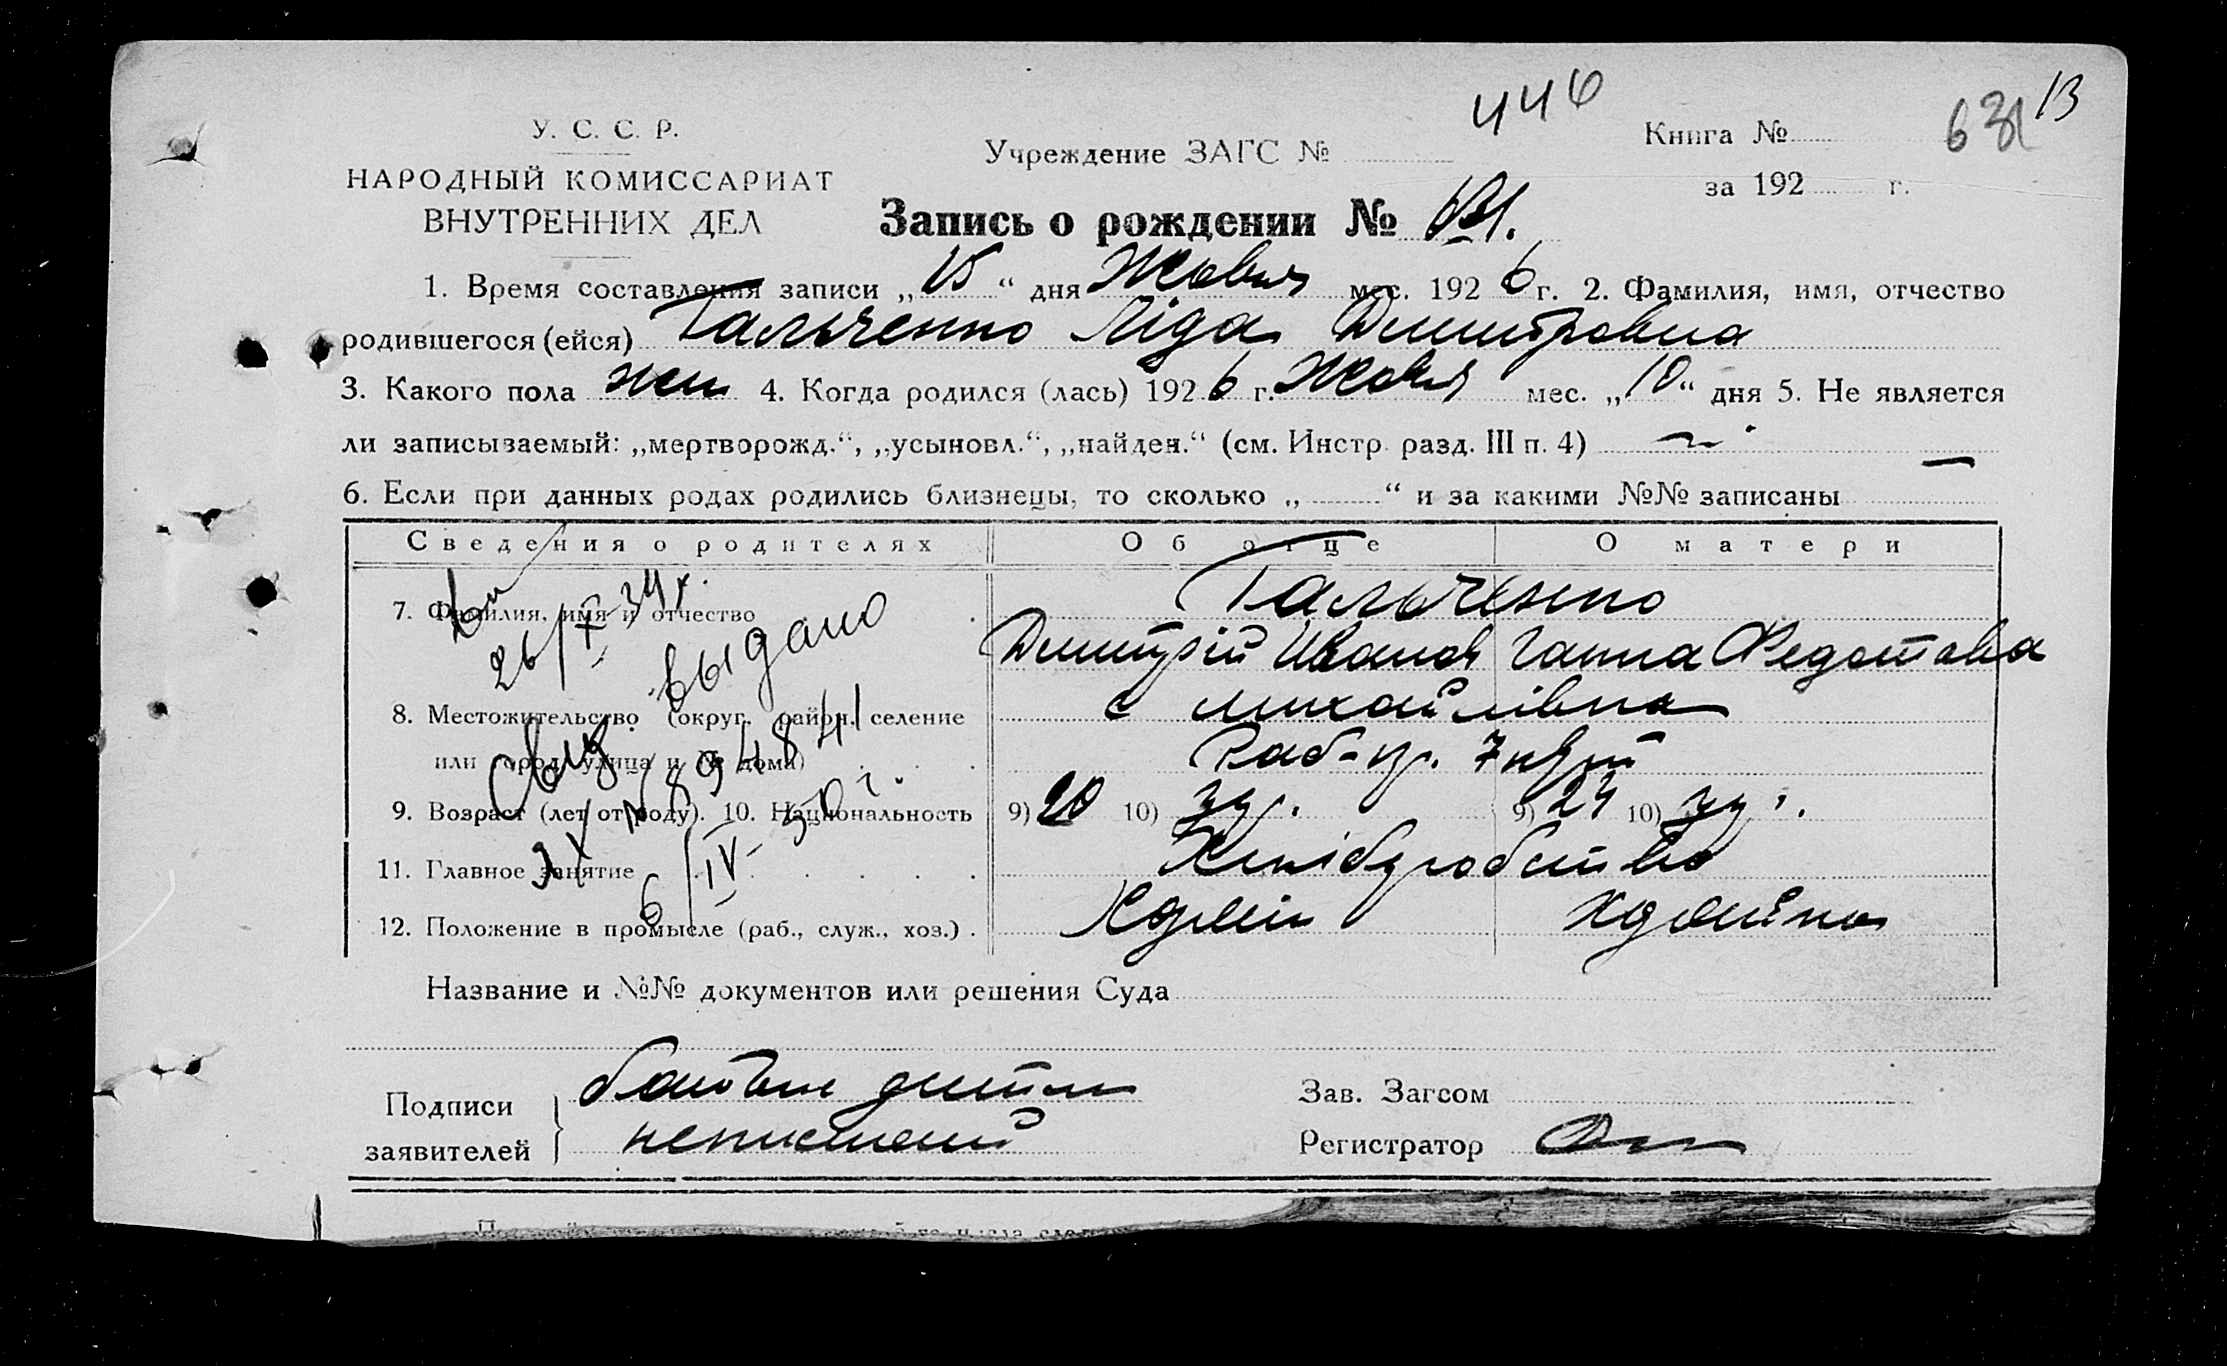 446
631 13
У. С. С. Р.
НАРОДНЫЙ КОМИССАРИАТ
ВНУТРЕННИХ ДЕЛ
Учреждение ЗАГС №
Книга №
за 192 г.
Запись о рождении № 631.
1. Время составления записи „15“ дня Жовтня мес. 1926 г. 2. Фамилия, имя, отчество
родившегося (ейся) Гальченко Ліда Дмитровна
3. Какого пола жін 4. Когда родился (лась) 1926 г. Жовтня мес. „10“ дня 5. Не является
ли записываемый: „мертворожд.“, „усыновл.“, „найден.“ (см. Инстр. разд. III п. 4) —
6. Если при данных родах родились близнецы, то сколько „ “ и за какими №№ записаны —
Сведения о родителях Об отце О матери
7. Фамилия, имя и отчество Гальченко
Дмитрій Иванов Ганна Федотовна
8. Местожительство (округ. район. селение с Михайлівка
или город улица и № дома)
9. Возраст (лет от роду). 10. Национальность 9) 20 10) 9) 24 10)
11. Главное занятие Хліборобство
12. Положение в промысле (раб., служ., хоз.)
26/X 34 г.
Выдано
Свид.
№ 894841
6/IV-50 г.
Название и №№ документов или решения Суда
Подписи
заявителей
батько дитини
неписмений
Зав. Загсом
Регистратор